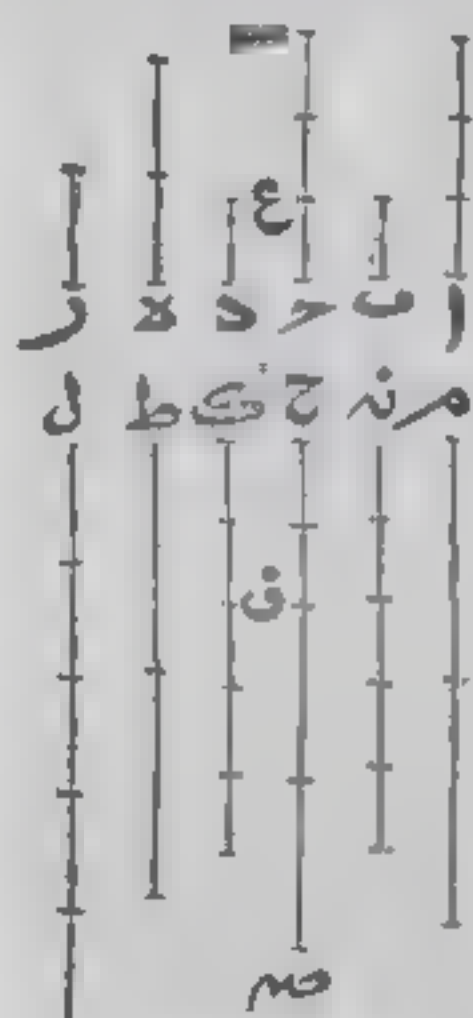 ع
ا ب ح د ه ر
م ن ح ك ط ل
ف
ص